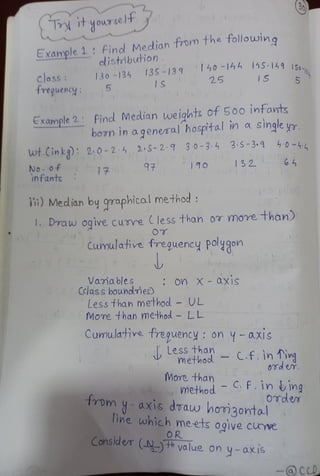 30
Try it yourself
Example 1 : Find Median from the following
distribution.
Class : 130-134 135-139 140-144 145-149 150-
frequency : 5 15 25 15 5
Example 2 : Find Median weights of 500 infants
born in a general hospital in a single yr.
Wt. (in kg) : 2.0-2.4 2.5-2.9 3.0-3.4 3.5-3.9 4.0-4.4
No. of 17 97 190 132 64
infants
iii) Median by graphical method :
1. Draw ogive curve (less than or more than)
or
Cumulative frequency polygon
↓
Variables : on x-axis
(class boundries)
Less than method - UL
More than method - LL
Cumulative frequency : on y-axis
↓ Less than method - C.f. in ↑ing order
More than method - C.F. in ↓ing order
from y-axis draw horizontal
line which meets ogive curve
OR
Consider (N/2)th value on y-axis
-@CCD